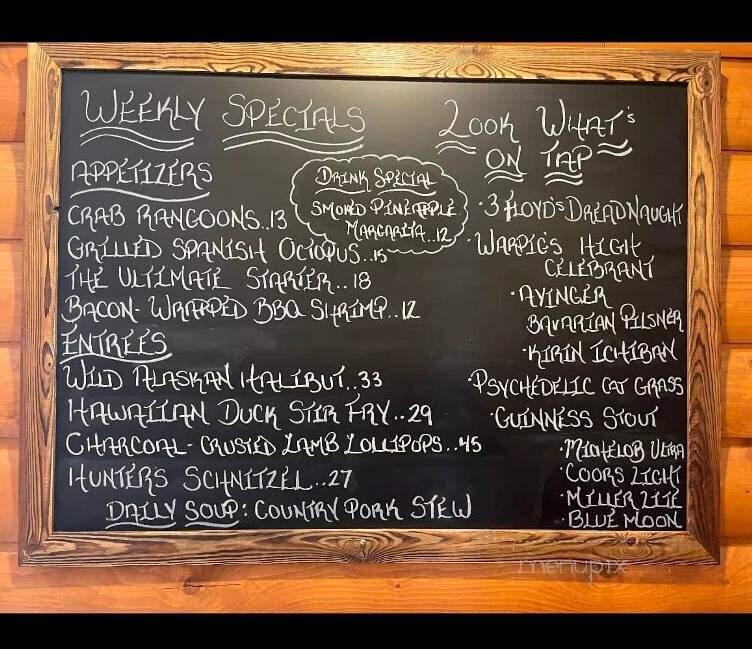 WEEKLY SPECIALS
APPETIZERS
CRAB RANGOONS..13
GRILLED SPANISH OCTOPUS..15
THE ULTIMATE STARTER..18
BACON-WRAPPED BBQ SHRIMP..12
ENTRÉES
WILD ALASKAN HALIBUT..33
HAWAIIAN DUCK STIR FRY..29
CHARCOAL-CRUSTED LAMB LOLLIPOPS..45
HUNTERS SCHNITZEL..27
DAILY SOUP: COUNTRY PORK STEW
DRINK SPECIAL
SMOKED PINEAPPLE
MARGARITA..12
LOOK WHAT'S
ON TAP
·3 FLOYD'S DREADNAUGHT
·WARPIGS HIGH
CELEBRANT
·AYINGER
BAVARIAN PILSNER
·KIRIN ICHIBAN
·PSYCHEDELIC CAT GRASS
·GUINNESS STOUT
·MICHELOB ULTRA
·COORS LIGHT
·MILLER LITE
·BLUE MOON
menupix